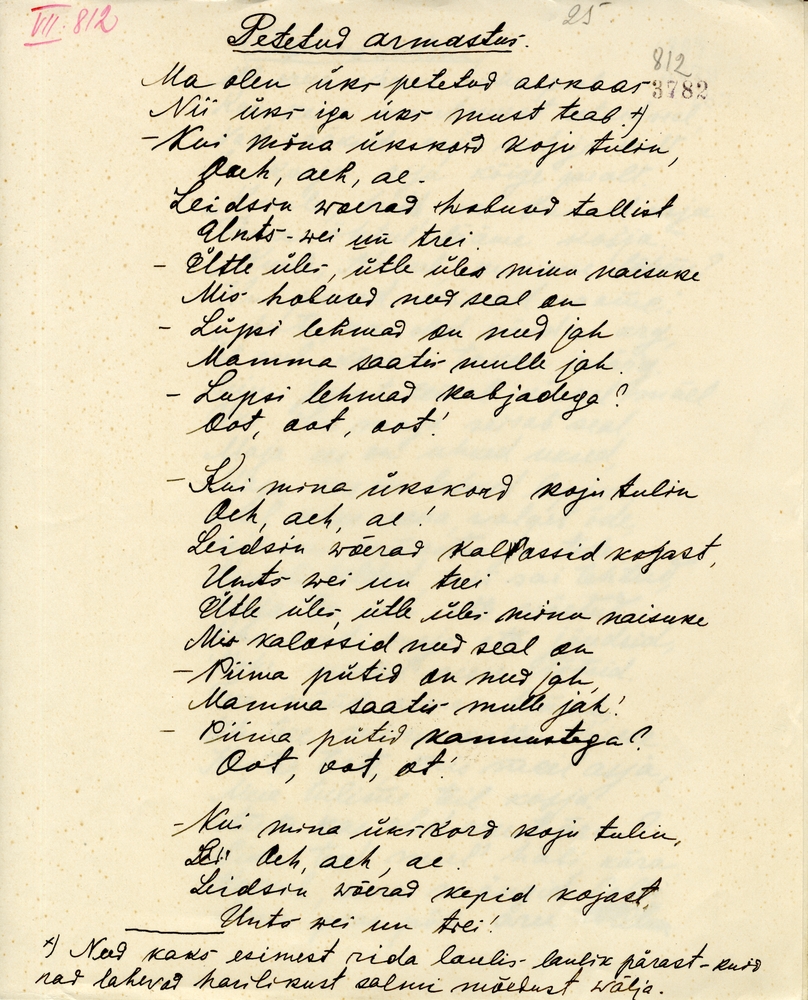 VII. 812
25.
Petetud armastus.
812
Ma olen üks petetud abikaas
3782
Nii üks iga üks must teab, +)
- Kui mina ükskord koju tulin,
Oach, ach, ae.
Leidsin wõerad hobused tallist
Unts - wei un trei.
- Ütle üles, ütle üles minu naisuke
Mis hobused need seal on
- Lüpsi lehmad on need jah
Mamma saatis mulle jah.
- Lupsi lehmad kabjadega?
Oot, oot, oot!
- Kui mina ükskord koju tulin
Och, ach, ae!
Leidsin wõerad kalossid kojast,
Unts wei un trei
Ütle üles, ütle üles minu naisuke
Mis kalossid need seal on
- Piima pütid on need jah,
Mamma saatis mulle jah!
- Piima pütid kannustega?
Oot, oot, ot!
- Kui mina ükskord koju tulin,
Och, ach, ae.
Leidsin wõerad kepid kojast,
Unts wei un trei!
+) Need kaks esimest rida laulis laulik pärast - kuid
nad lahevad harilikust salmi mõõdust wälja.